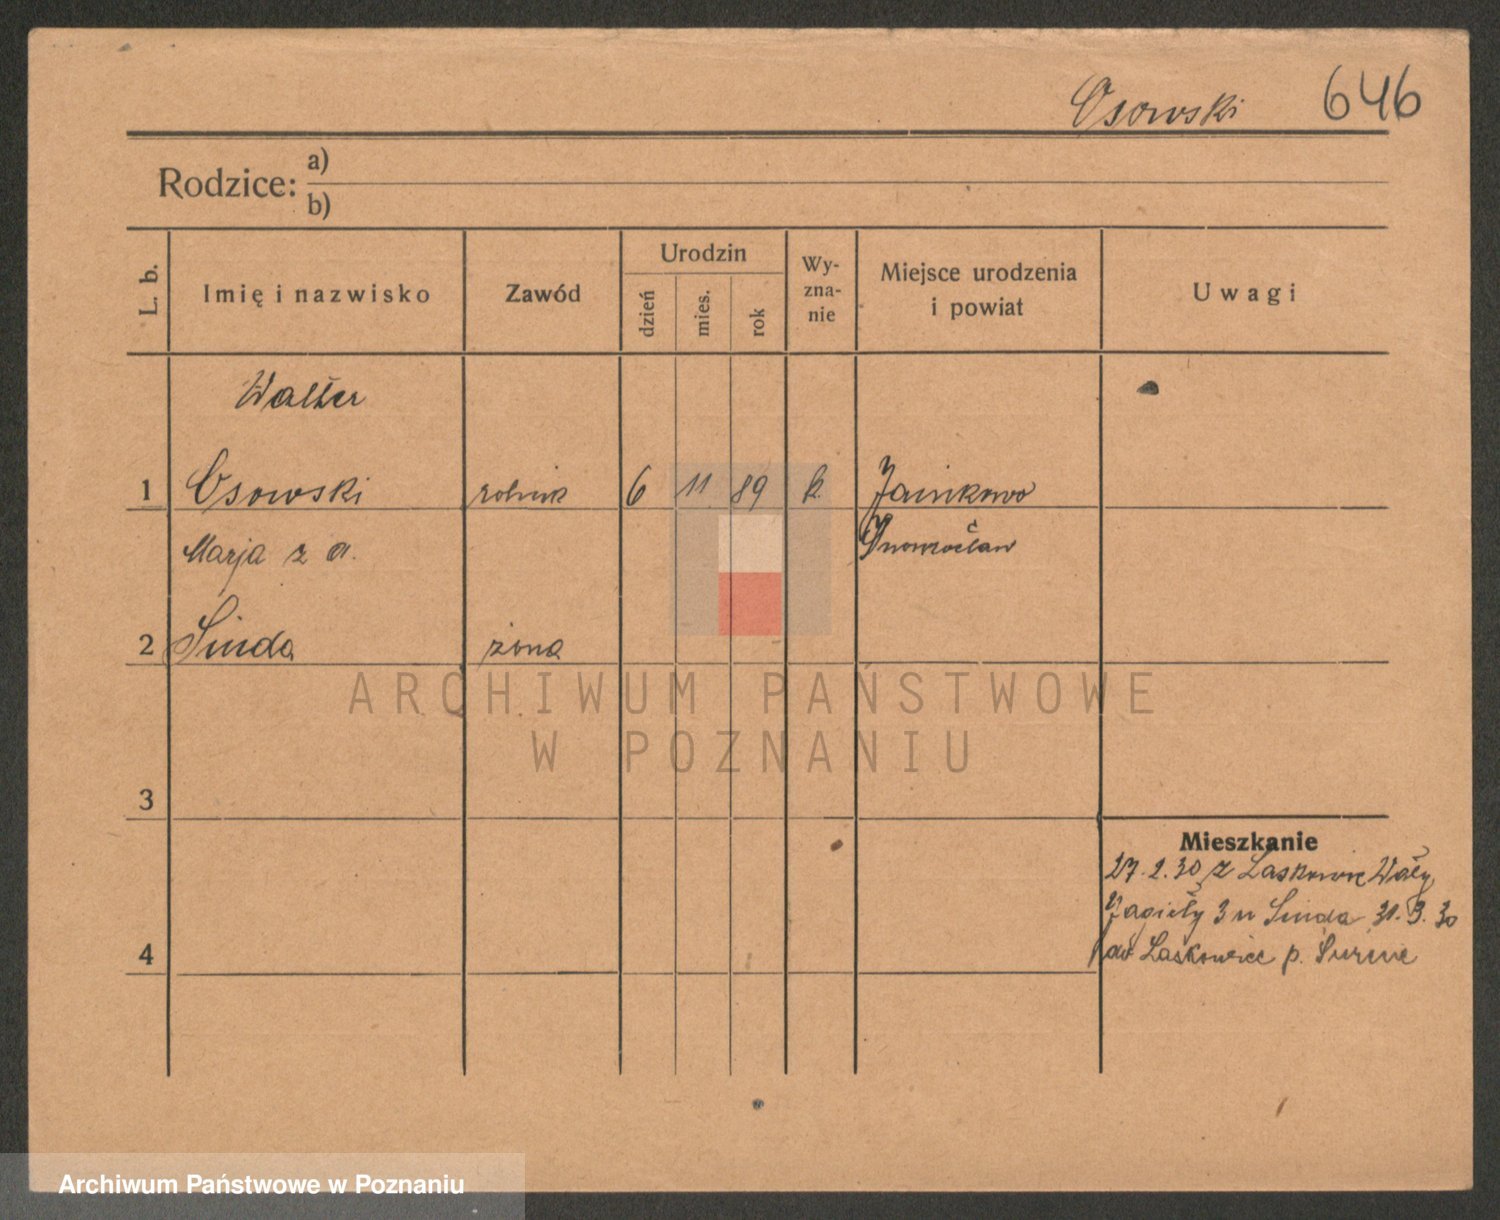 Osowski 646
Rodzice: a)
b)
L. b. Imię i nazwisko Zawód Urodzin dzień mies. rok Wy-zna-nie Miejsce urodzenia i powiat Uwagi
Walter
1 Osowski rolnik 6 11 89 k.
Marja z d.
2 Sinda żona
ARCHIWUM PAŃSTWOWE
W POZNANIU
3
Mieszkanie
27.2.30 z Laskowic Wały
Jagiełły 3 u Sinda 31.3.30
4 do Laskowice p.
Archiwum Państwowe w Poznaniu